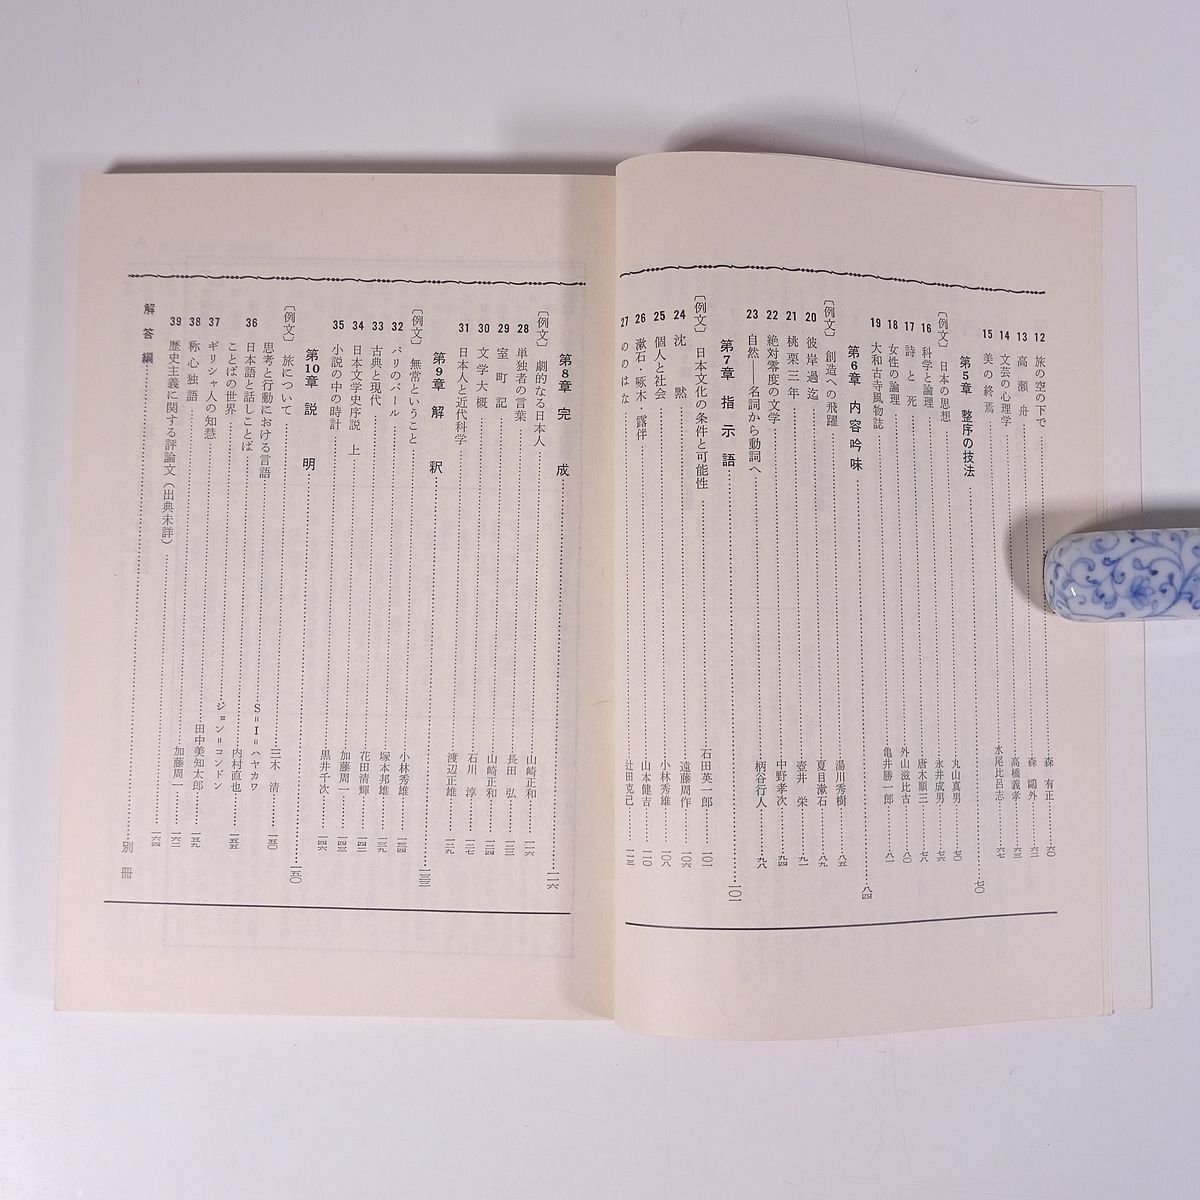 12 旅の空の下で 森 有正 六〇
13 高瀬舟 森 鷗外 六二
14 文芸の心理学 高橋義孝 六三
15 美の終焉 水尾比呂志 六七
第5章 整序の技法 七〇
〔例文〕 日本の思想 丸山真男 七〇
16 科学と論理 永井成男 七六
17 詩と死 唐木順三 七八
18 女性の論理 外山滋比古 八〇
19 大和古寺風物誌 亀井勝一郎 八一
第6章 内容吟味 八四
〔例文〕 創造への飛躍 湯川秀樹 八五
20 彼岸過迄 夏目漱石 八九
21 桃栗三年 壺井 栄 九一
22 絶対零度の文学 中野孝次 九四
23 自然――名詞から動詞へ 柄谷行人 九八
第7章 指示語 一〇一
〔例文〕 日本文化の条件と可能性 石田英一郎 一〇一
24 沈黙 遠藤周作 一〇六
25 個人と社会 小林秀雄 一〇八
26 漱石・啄木・露伴 山本健吉 一一〇
27 ののはな 辻田克己 一一三
第8章 完成 一一六
〔例文〕 劇的なる日本人 山崎正和 一一六
28 単独者の言葉 長田 弘
29 室町記 山崎正和 一二四
30 文学大概 石川 淳 一二七
31 日本人と近代科学 渡辺正雄 一二九
第9章 解釈 一三三
〔例文〕 無常ということ 小林秀雄 一三四
32 パリのバール 塚本邦雄 一三九
33 古典と現代 花田清輝 一四二
34 日本文学史序説 上 加藤周一 一四三
35 小説の中の時計 黒井千次 一四六
第10章 説明 一五〇
〔例文〕 旅について 三木 清 一五〇
思考と行動における言語 S=I=ハヤカワ
36 日本語と話しことば 内村直也 一五五
ことばの世界 ジョン=コンドン
37 ギリシャ人の知慧 田中美知太郎 一五九
38 称心独語 加藤周一 一六二
39 歴史主義に関する評論文(出典未詳) 一六四
解答編 別冊